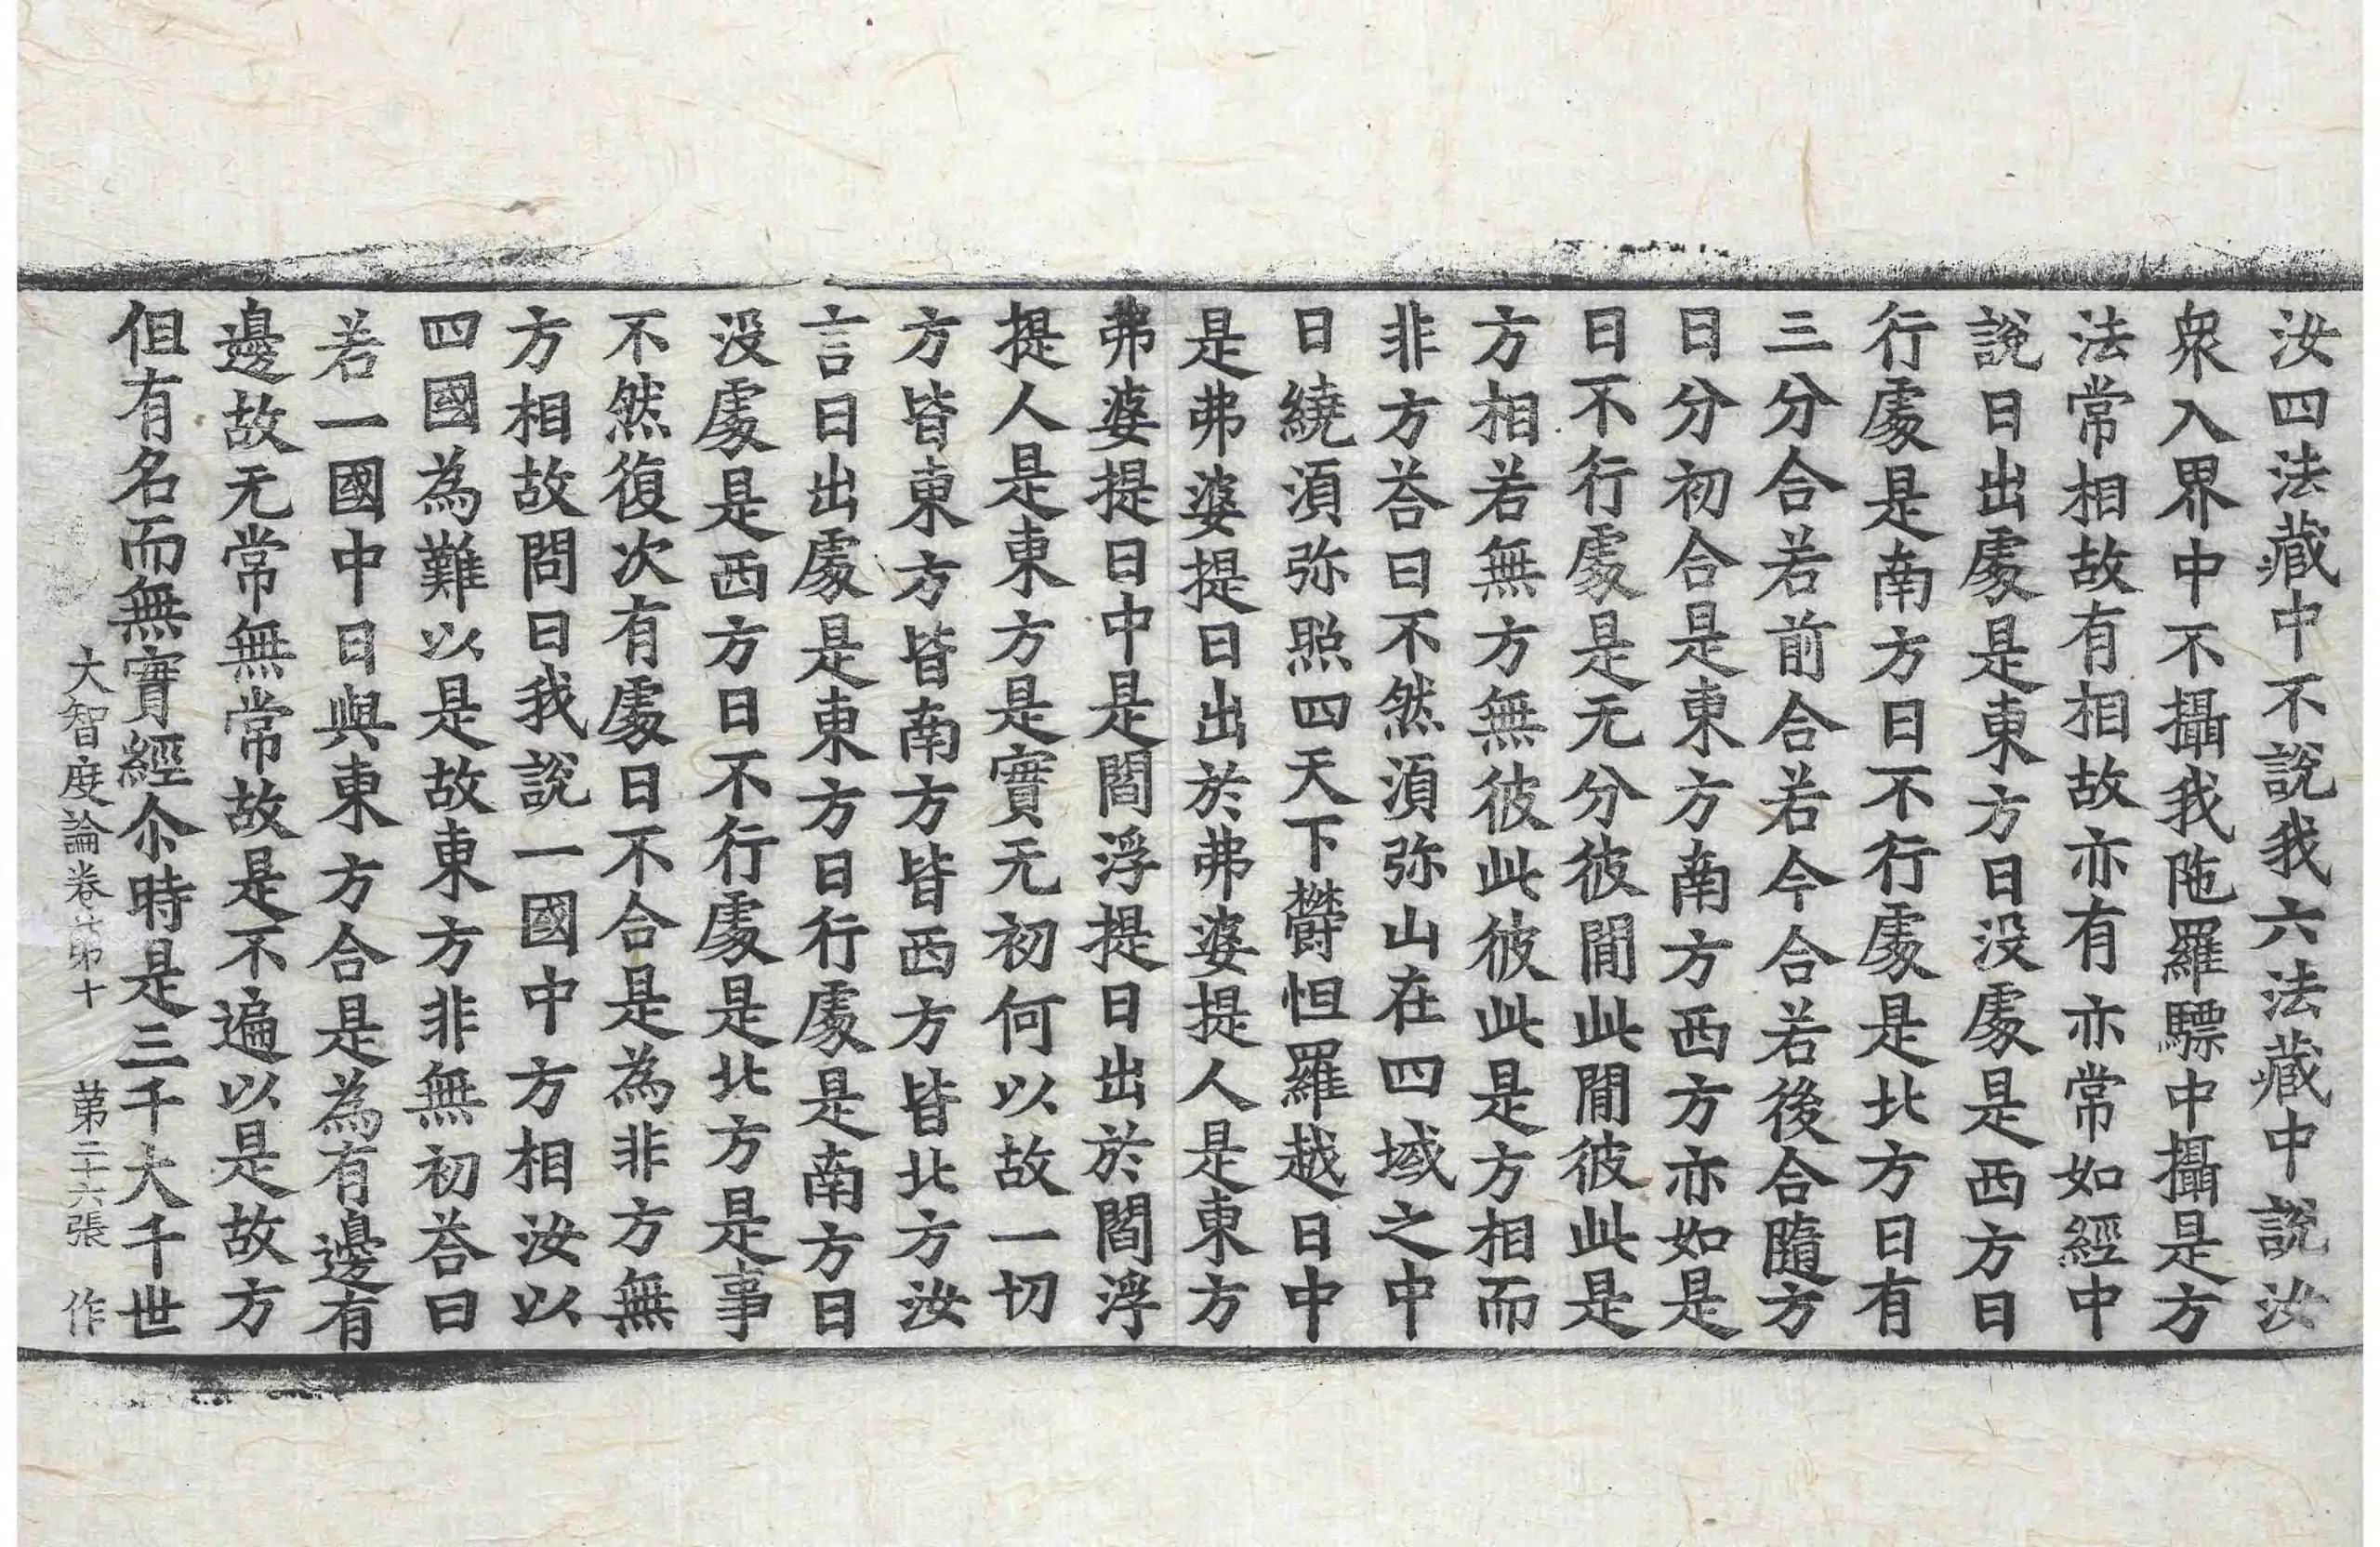 汝四法藏中不說我六法藏中說汝
衆入界中不攝我陁羅驃中攝是方
法常相故有相故亦有亦常如經中
說日出處是東方日没處是西方日
行處是南方日不行處是北方日有
三分合若前合若今合若後合隨方
日分初合是東方南方西方亦如是
日不行處是无分彼閒此閒彼此是
方相若無方無彼此彼此是方相而
非方荅曰不然湏弥山在四域之中
日繞湏弥照四天下欝怛羅越日中
是弗婆提日出於弗婆提人是東方
弗婆提日中是閻浮提日出於閻浮
提人是東方是實无初何以故一切
方皆東方皆南方皆西方皆北方汝
言日出處是東方日行處是南方日
没處是西方日不行處是北方是事
不然復次有處日不合是為非方無
方相故問曰我說一國中方相汝以
四國為難以是故東方非無初荅曰
若一國中日與東方合是為有邊有
邊故无常無常故是不遍以是故方
但有名而無實經尒時是三千大千世
大智度論卷第十 第二十六張 作